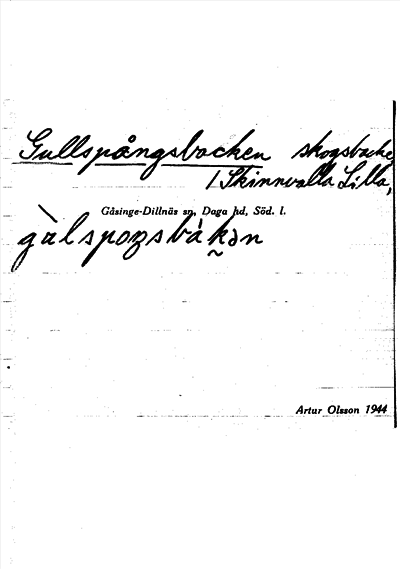 Gullspångsbacken skogsbacke
/ Skinnvalla Lilla,
Gåsinge-Dillnäs sn, Daga hd, Söd. l.
gàlspoŋsbàkən
Artur Olsson 1944